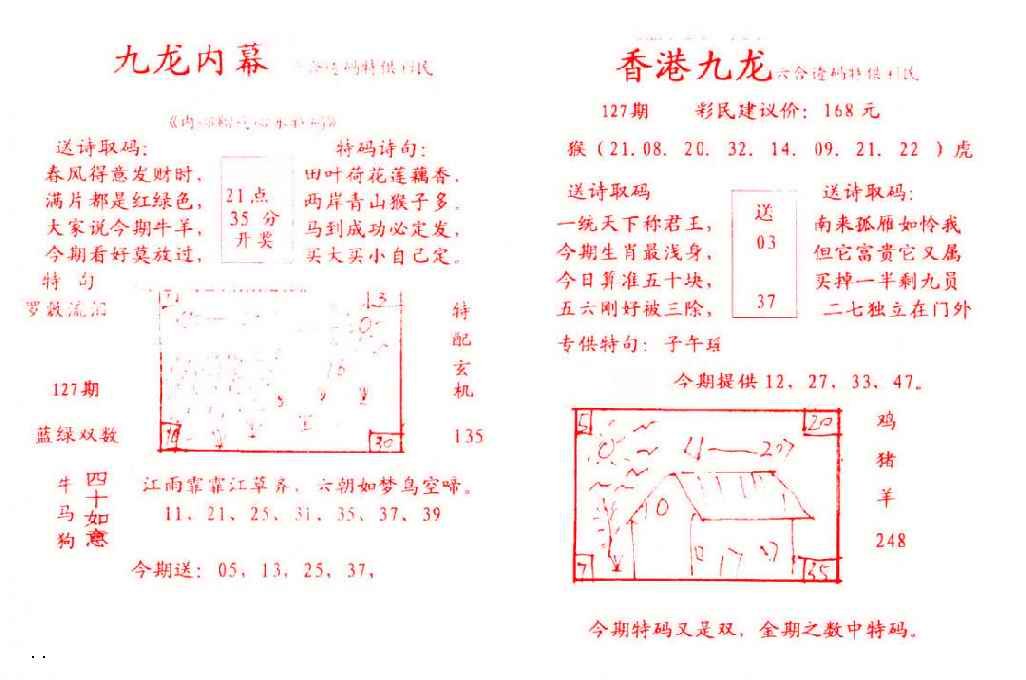 九龙内幕
送诗取码：
春风得意发财时，
满片都是红绿色，
大家说今期牛羊，
今期看好莫放过，
21点
35 分
开奖
特码诗句：
田叶荷花莲藕香，
两岸青山猴子多。
马到成功必定发，
买大买小自己定。
特 句
127期
蓝绿双数
3
10
30
特
配
玄
机
135
牛
马
狗
四十如意
江雨霏霏江草齐，六朝如梦鸟空啼。
11、21、25、31、35、37、39
今期送：05，13，25，37，
香港九龙
127期 彩民建议价：168 元
猴（21. 08. 20. 32. 14. 09. 21. 22 ）虎
送诗取码
一统天下称君王，
今期生肖最浅身，
今日算准五十块，
五六刚好被三除，
送
03
37
送诗取码：
南来孤雁如怜我
但它富贵它又属
买掉一半剩九员
二七独立在门外
专供特句：子午
今期提供 12、27、33、47。
5
20
7
35
鸡
猪
羊
248
今期特码又是双，金期之数中特码。